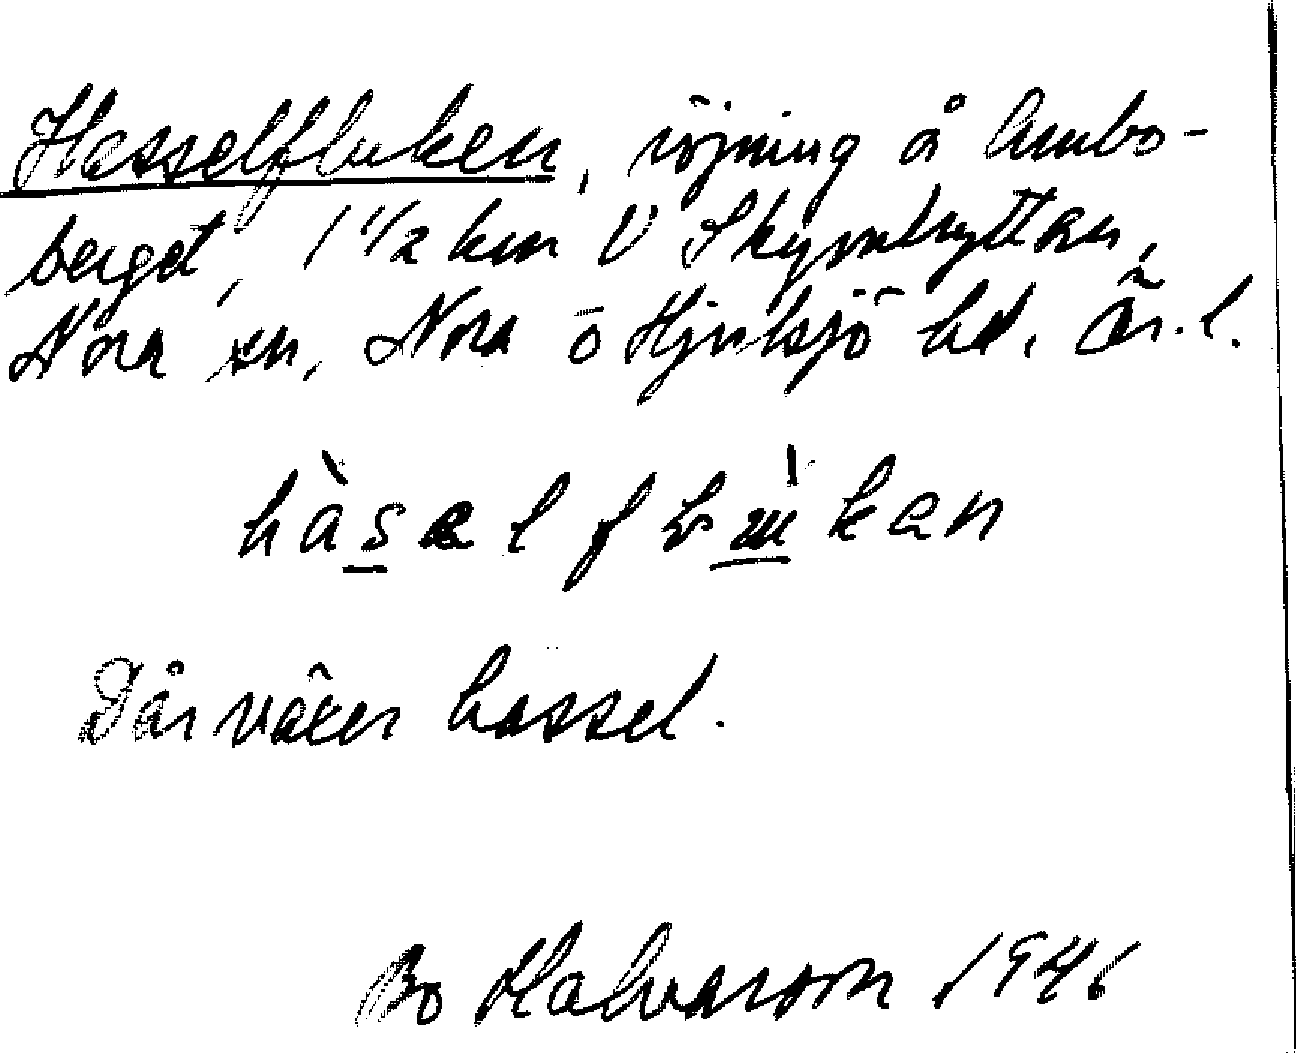 Hasselfluken, röjning å Limbo-
berget, 1 1/2 km V Skymhyttan,
Nora sn, Nora o Hjulsjö bd. Ör. l.
hàsəl f kan
Där växer hassel.
Bo Halvarson 1946